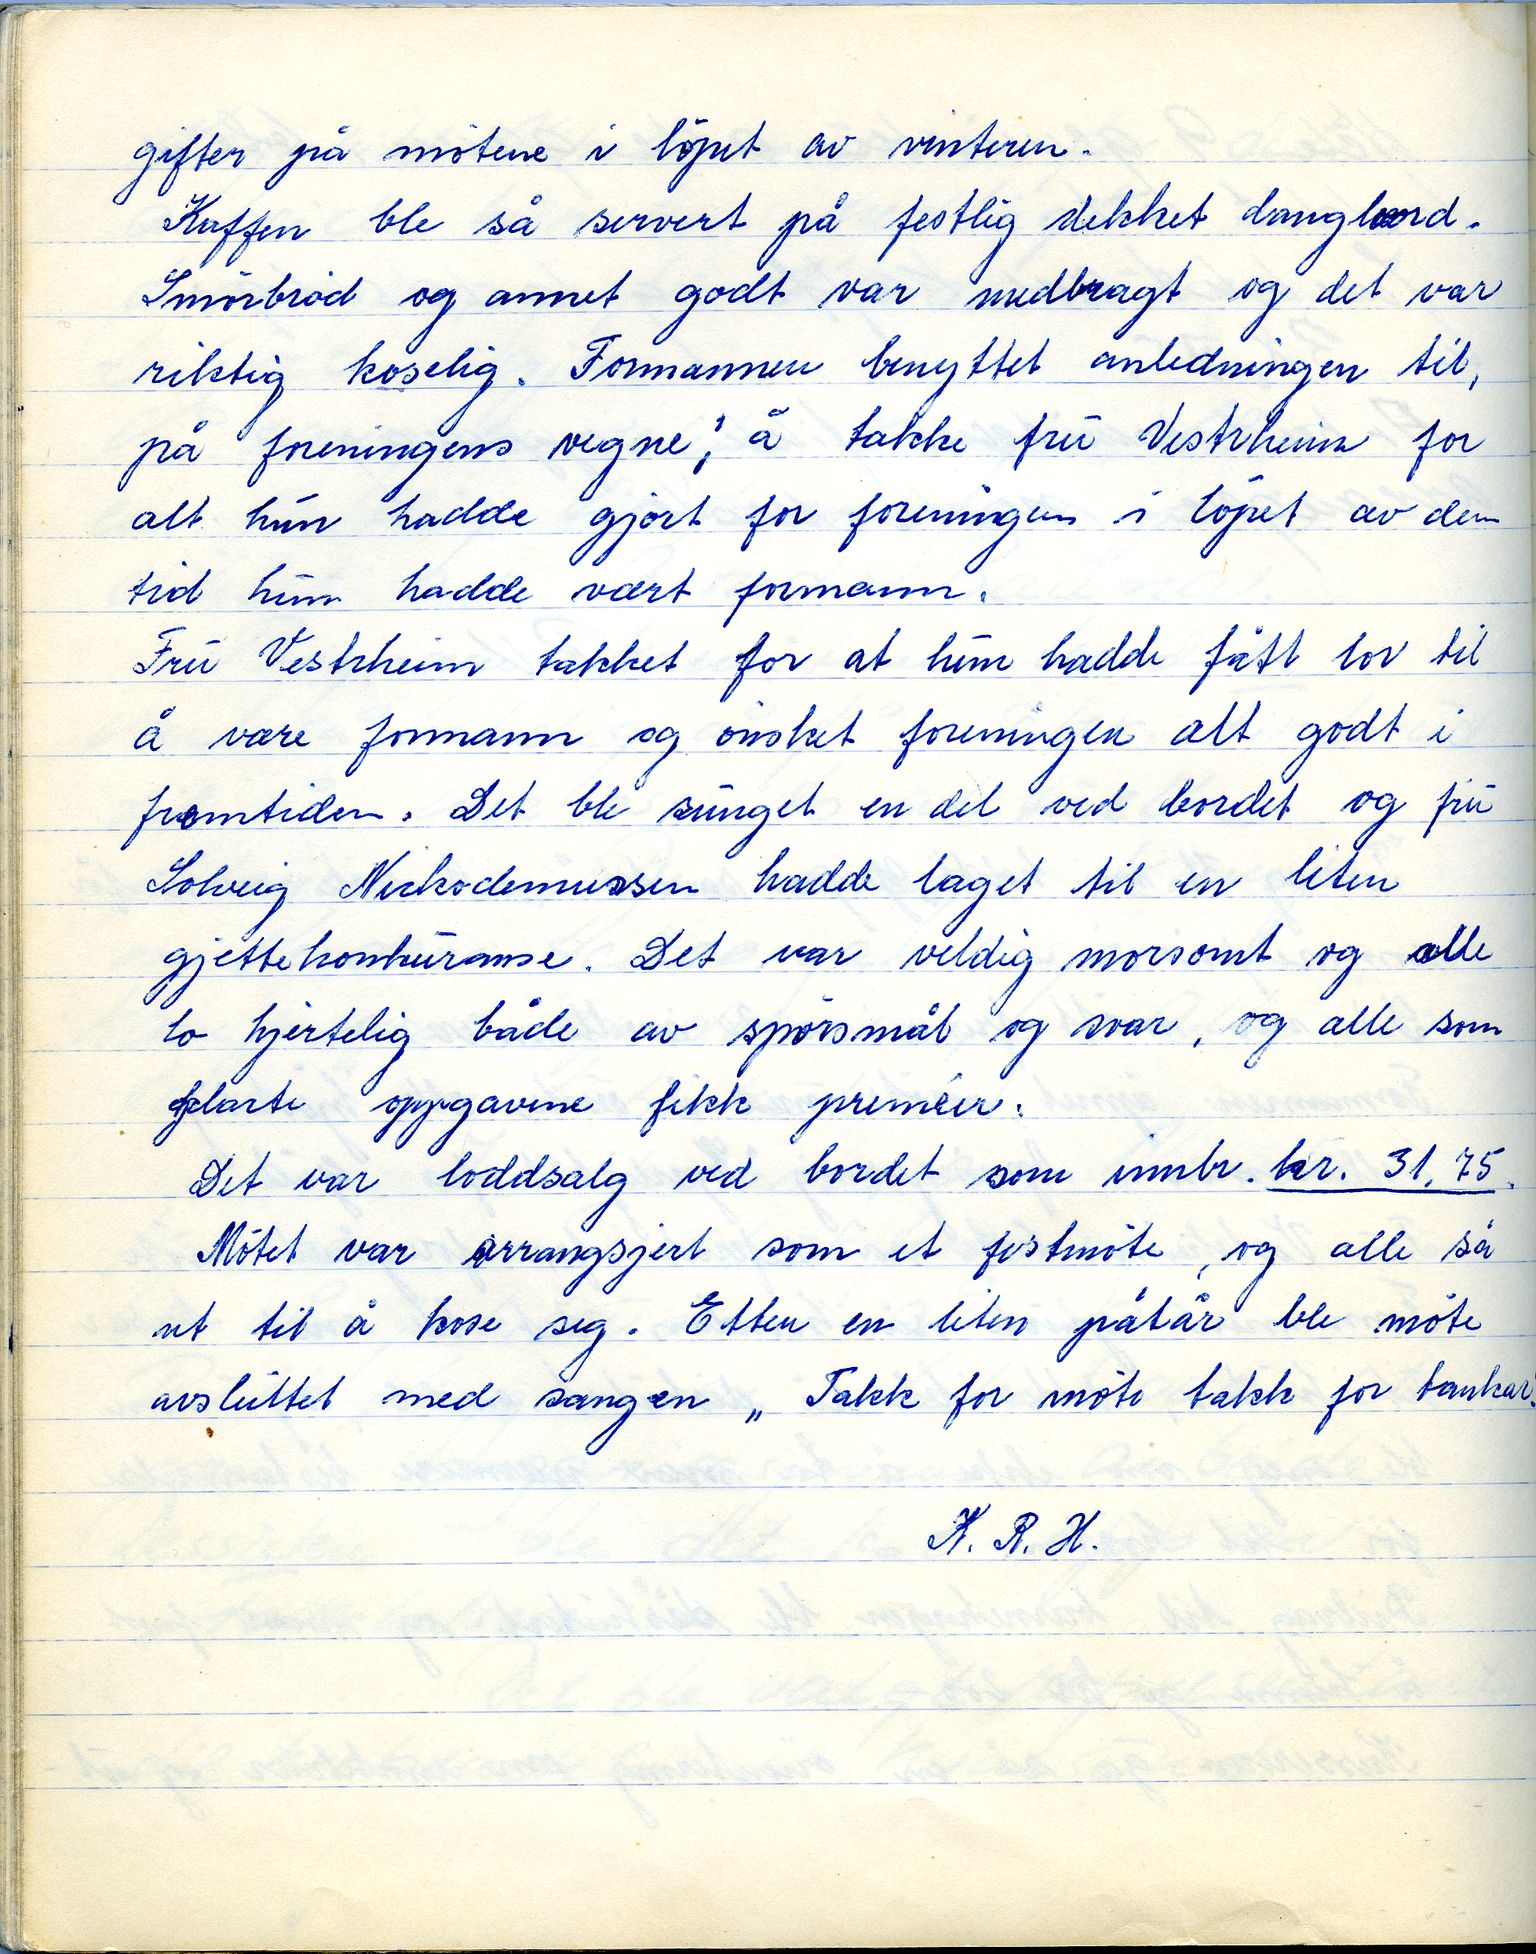 gifter på mötene i löpet av vinteren.
Kaffen ble så servert på festlig dekket langbord.
Smörbröd og annet godt var medbragt og det var
riktig koselig. Formannen benyttet anledningen til,
på foreningens vegne, å takke frü Vestrheim for
alt hün hadde gjort for foreningen i löpet av den
tid hün hadde vært formann.
Frü Vestrheim takket for at hün hadde fått lov til
å være formann og önsket foreningen alt godt i
fremtiden. Det ble sünget en del ved bordet og frü
Solveig Nickodemussen hadde laget til en liten
gjettekonküranse. Det var veldig morsomt og alle
lo hjertelig både av spörsmål og svar, og alle som
klarte oppgavene fikk premier.
Det var loddsalg ved bordet som innbr. kr. 31,75.
Mötet var arrangsjert som et festmöte, og alle så
ut til å kose seg. Etter en liten påtår ble möte
avslüttet med sangen „ Takk for möte takk for tankar".
K. R. H.